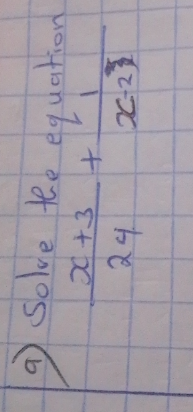 a) Solve the equation
x+3/24 + 1/x-2